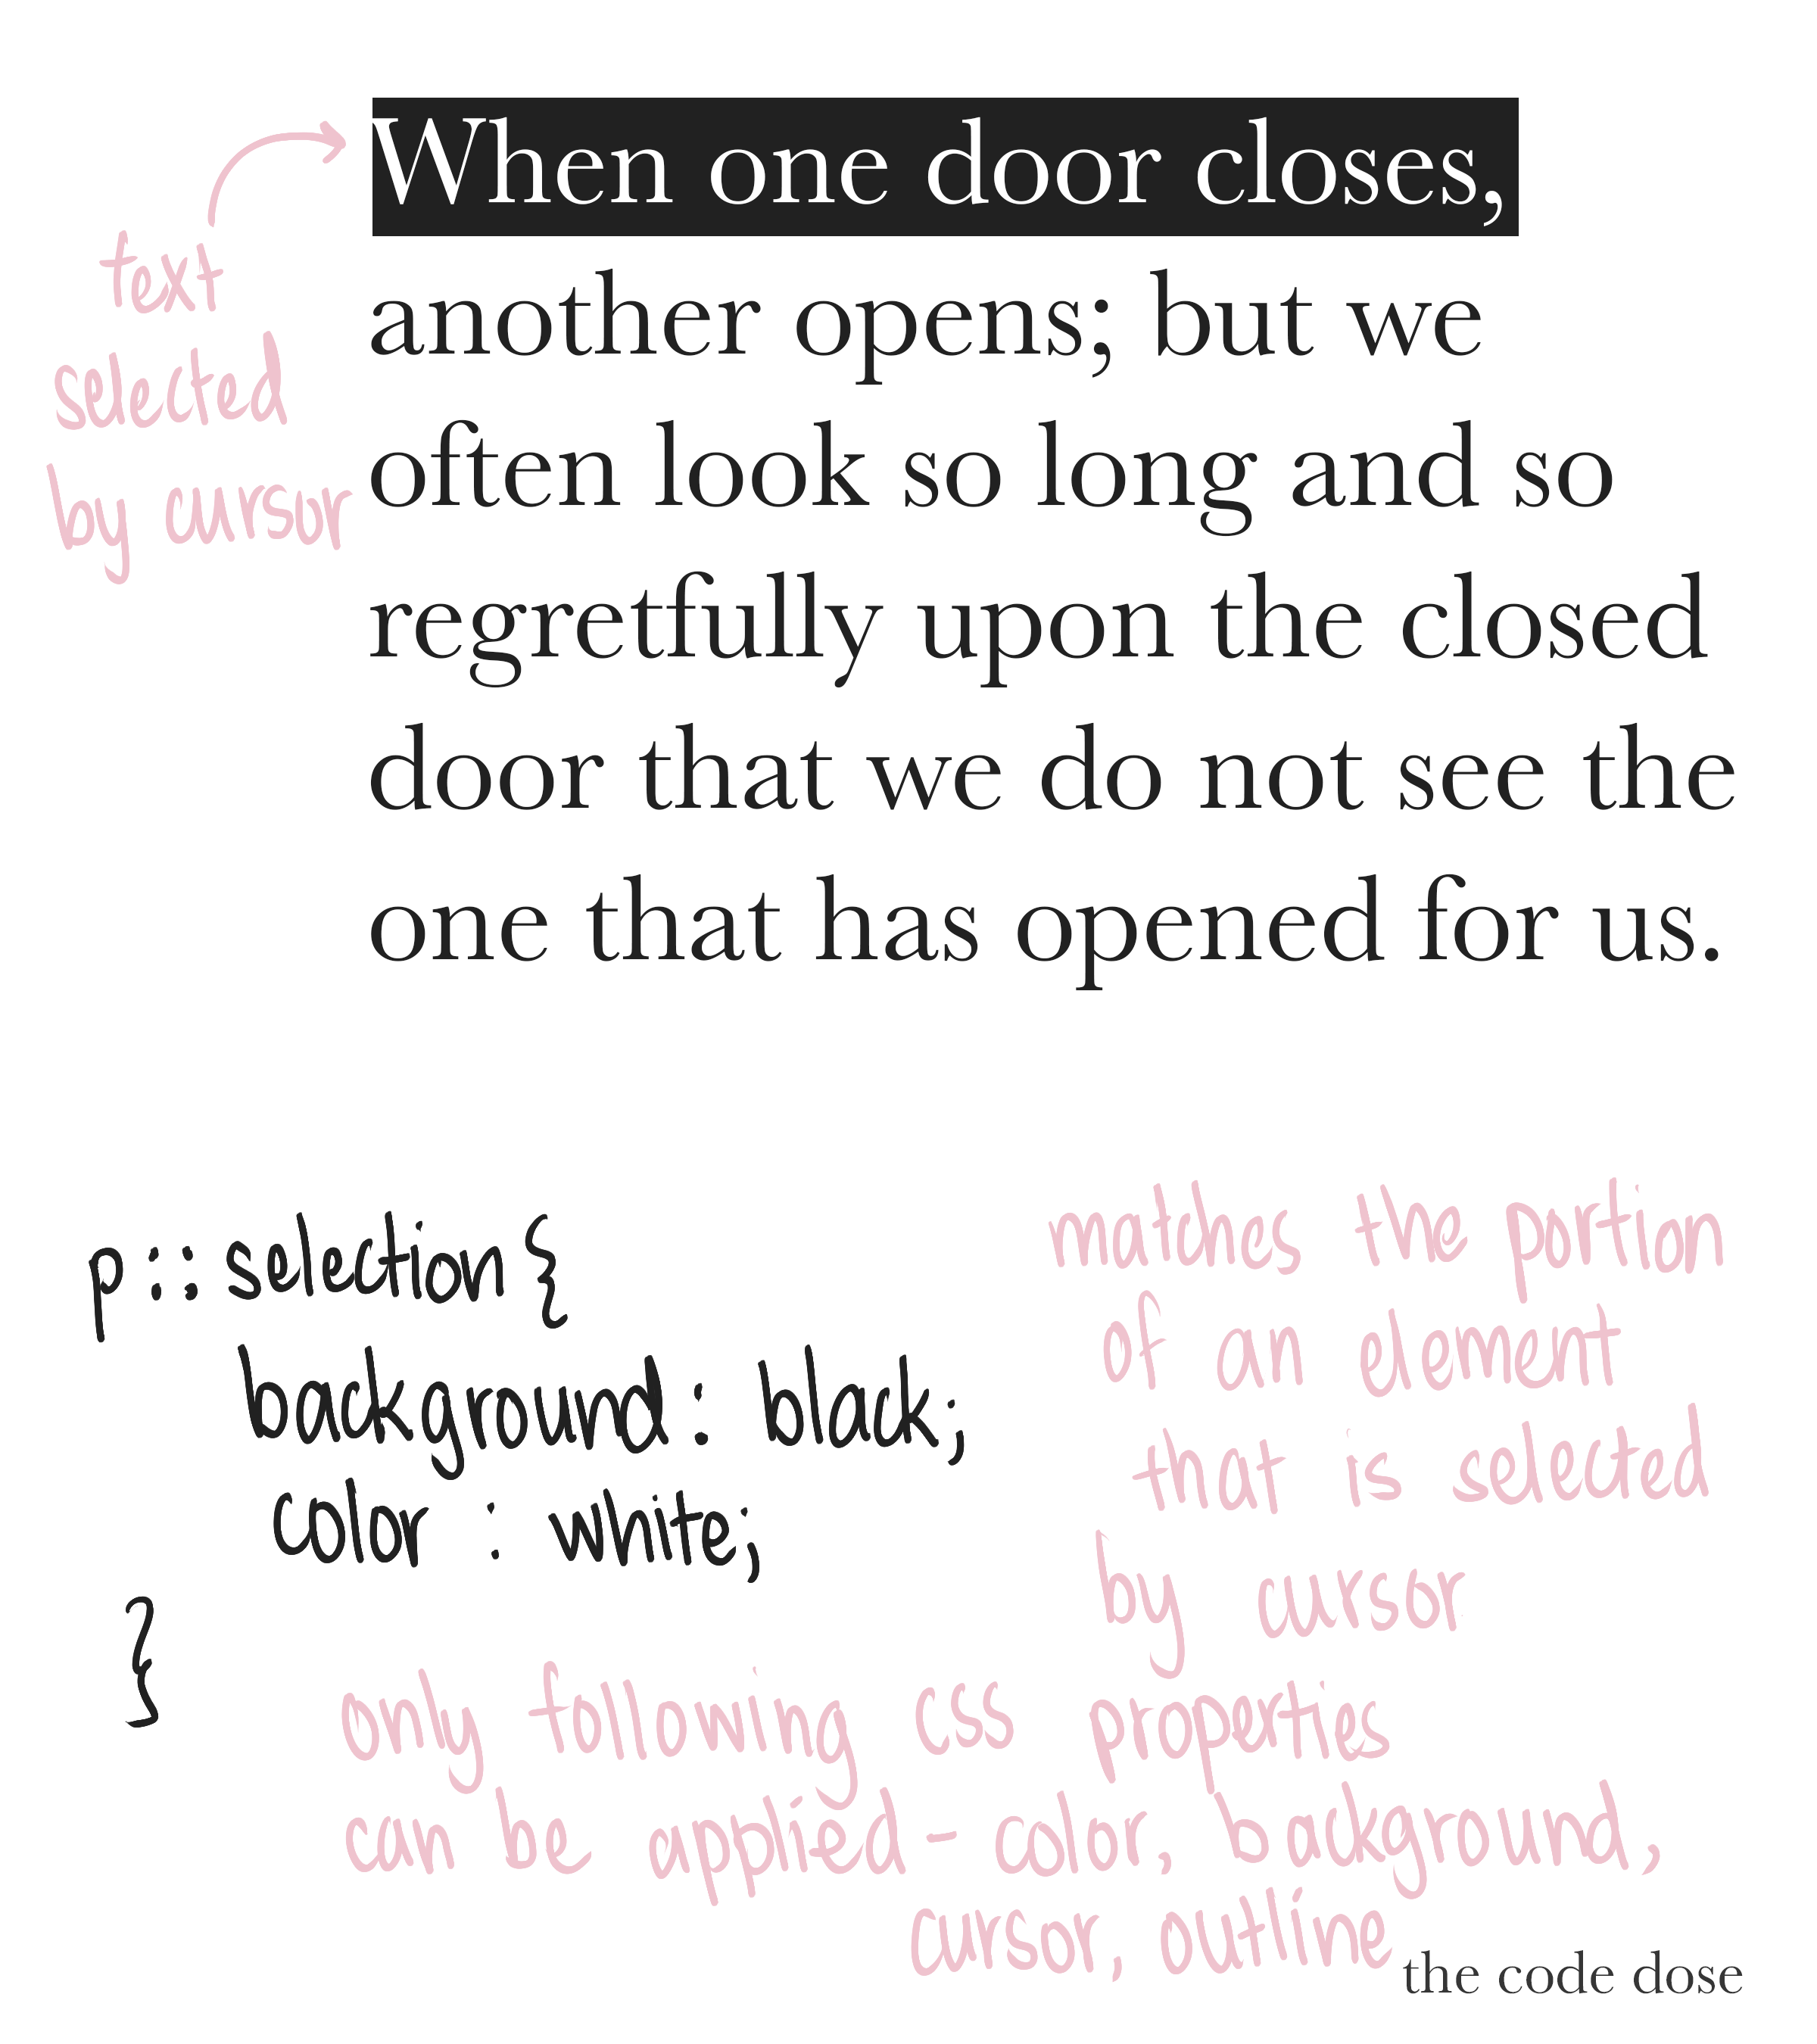 When one door closes,
another opens; but we
often look so long and so
regretfully upon the closed
door that we do not see the
one that has opened for us.
text
selected
by cursor
p::selection{
background: black;
color : white;
}
matches the portion
of an element
that is selected
by cursor
only following css properties
can be applied - color, background,
cursor, outline
the code dose